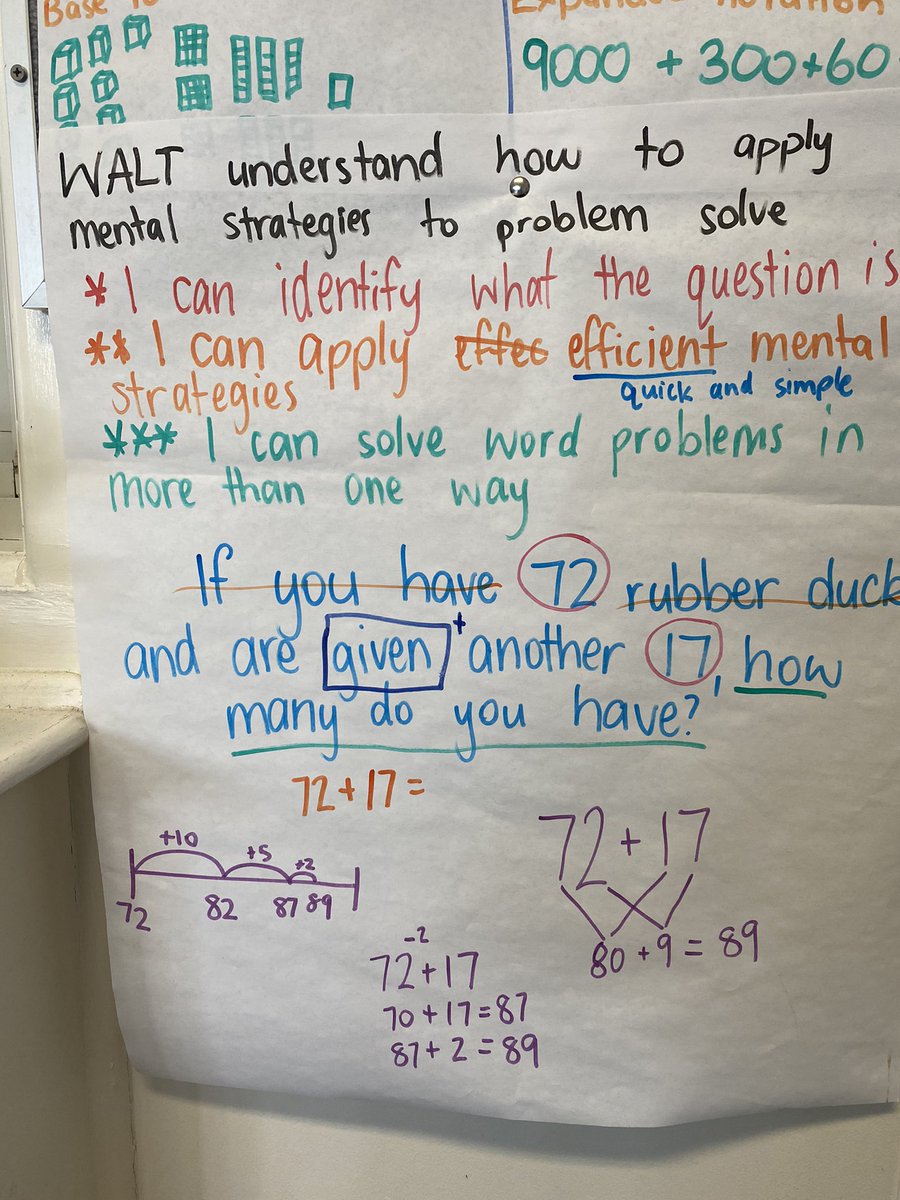 Base 10
Expanded notation
9000 + 300+60
WALT understand how to apply
mental strategies to problem solve
* I can identify what the question is
** I can apply effec efficient mental
quick and simple
strategies
*** I can solve word problems in
more than one way
If you have 72 rubber duck
and are given + another 17, how
many do you have?
72+17=
+10 +5 +2
72 82 87 89
72 + 17
80 + 9 = 89
-2
72+17
70+17=87
87+2=89